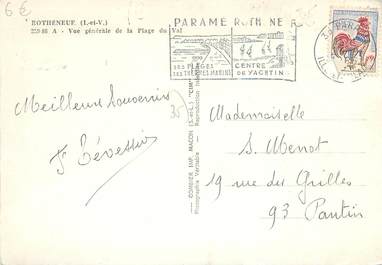 6€
ROTHENEUF (I.-et-V.)
259 88 A - Vue générale de la Plage du Val
PARAME ROTHENEF
SES PLAGES
SES THERMES MARINS
CENTRE
DE YACHTING
35 PARAME
Meilleurs Souvenirs
35
COMBIER IMP. MACON (S.-et-L.) "CIM"
Photographie Véritable - Reproduction Interdite
Mademoiselle
S. Menot
19 rue des Grilles
93 Pantin